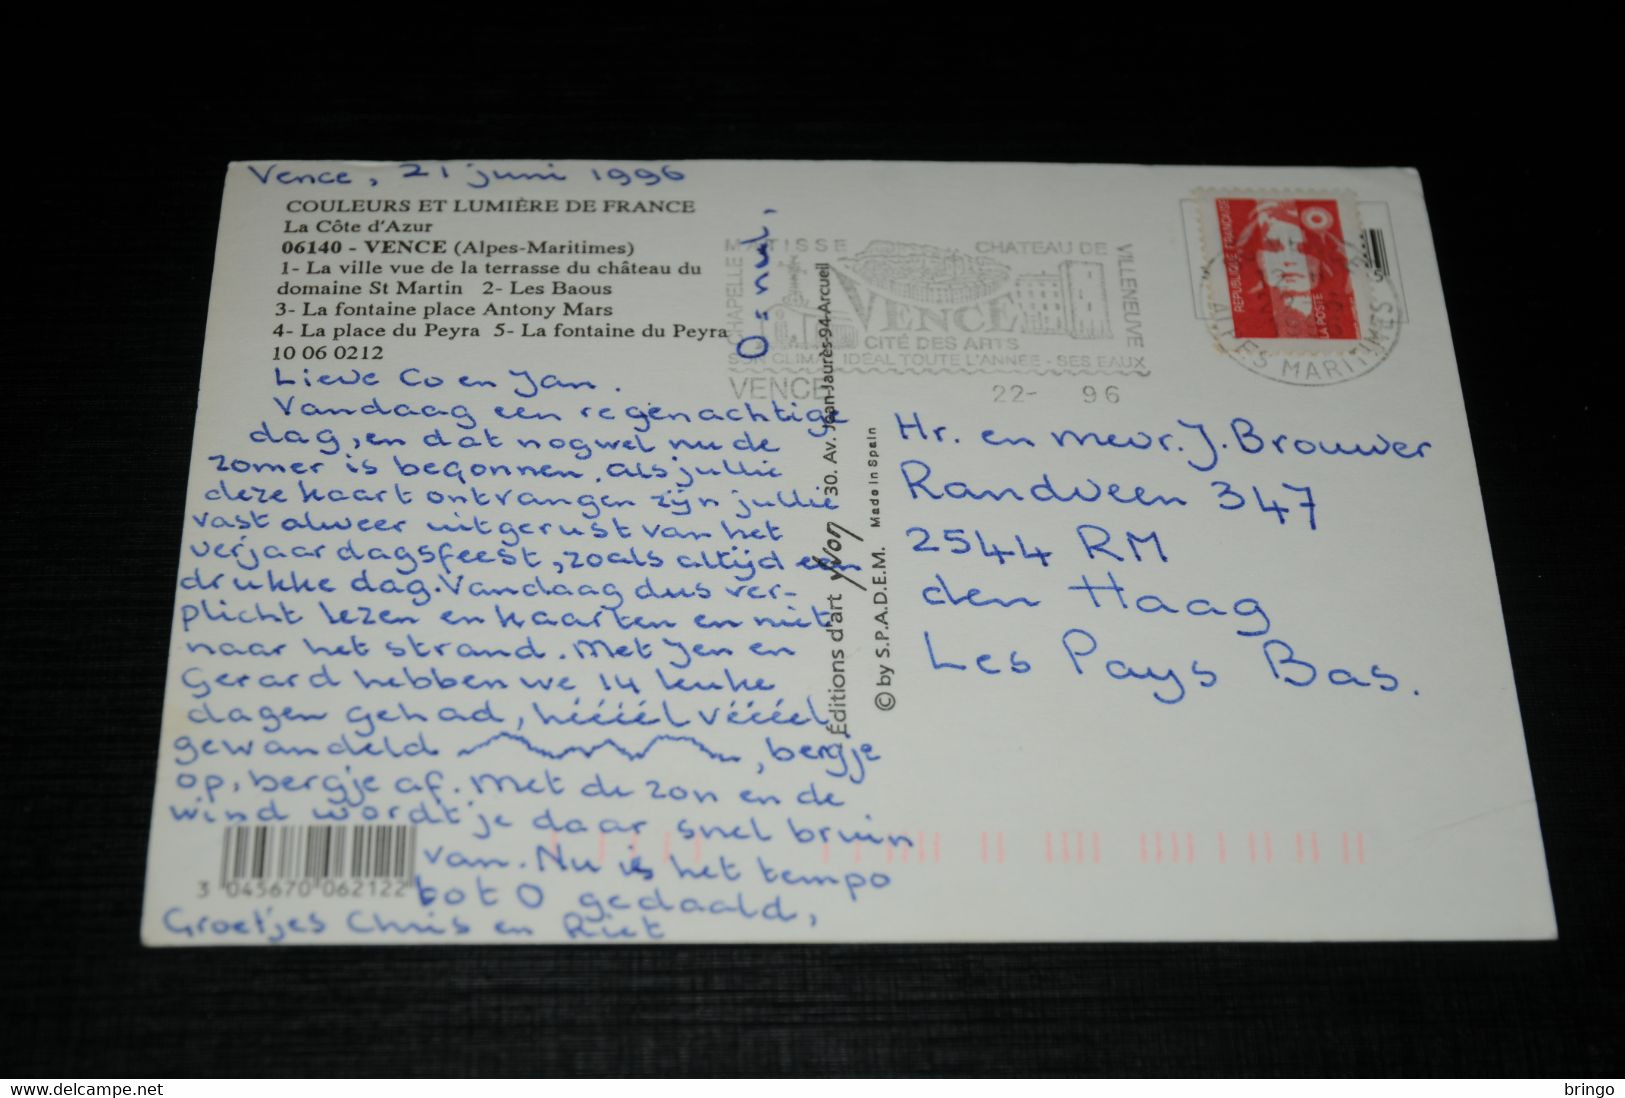 Vence, 21 juni 1996
COULEURS ET LUMIÈRE DE FRANCE
La Côte d'Azur
06140 - VENCE (Alpes-Maritimes)
1- La ville vue de la terrasse du château du
domaine St Martin 2- Les Baous
3- La fontaine place Antony Mars
4- La place du Peyra 5- La fontaine du Peyra
10 06 0212
Lieve Co en Jan.
Vandaag een regenachtige
dag, en dat nogwel nu de
zomer is begonnen. Als jullie
deze kaart ontvangen zijn jullie
vast alweer uitgerust van het
verjaardagsfeest, zoals altijd een
drukke dag. Vandaag dus ver-
plicht lezen en kaarten en niet
naar het strand. Met Jen en
Gerard hebben we 14 leuke
dagen gehad, hééééél vééééel
gewandeld , bergje
op, bergje af. Met de zon en de
wind wordt je daar snel bruin
van. Nu is het tempo
tot 0 gedaald,
Groetjes Chris en Riet
0 = nul.
3 045670 062122
Éditions d'art Yvon 30. Av. Jean-Jaurès-94-Arcueil
© by S.P.A.D.E.M. Made in Spain
CHAPELLE MATISSE
CHATEAU DE VILLENEUVE
VENCE
CITÉ DES ARTS
SON CLIMAT IDÉAL TOUTE L'ANNÉE - SES EAUX
VENCE 22- 96
RÉPUBLIQUE FRANÇAISE
LA POSTE
ALPES MARITIMES
Hr. en mevr. J. Brouwer
Randveen 347
2544 RM
den Haag
Les Pays Bas.
delcampe.net
bringo